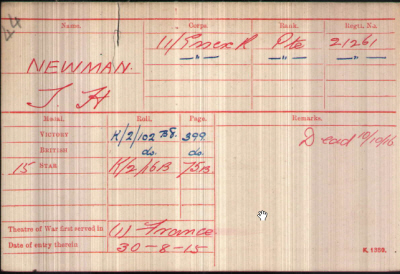 44
Name. Corps. Rank. Regtl. No.
NEWMAN. 11/Essex R Pte 21261
J. H — " — — " — — " —
Medal. Roll. Page. Remarks.
VICTORY K/2/102 B8. 399. Dead /10/16
BRITISH do. do.
15 STAR K/2/16B 75B.
Theatre of War first served in (1) France
Date of entry therein 30-8-15
K. 1380.